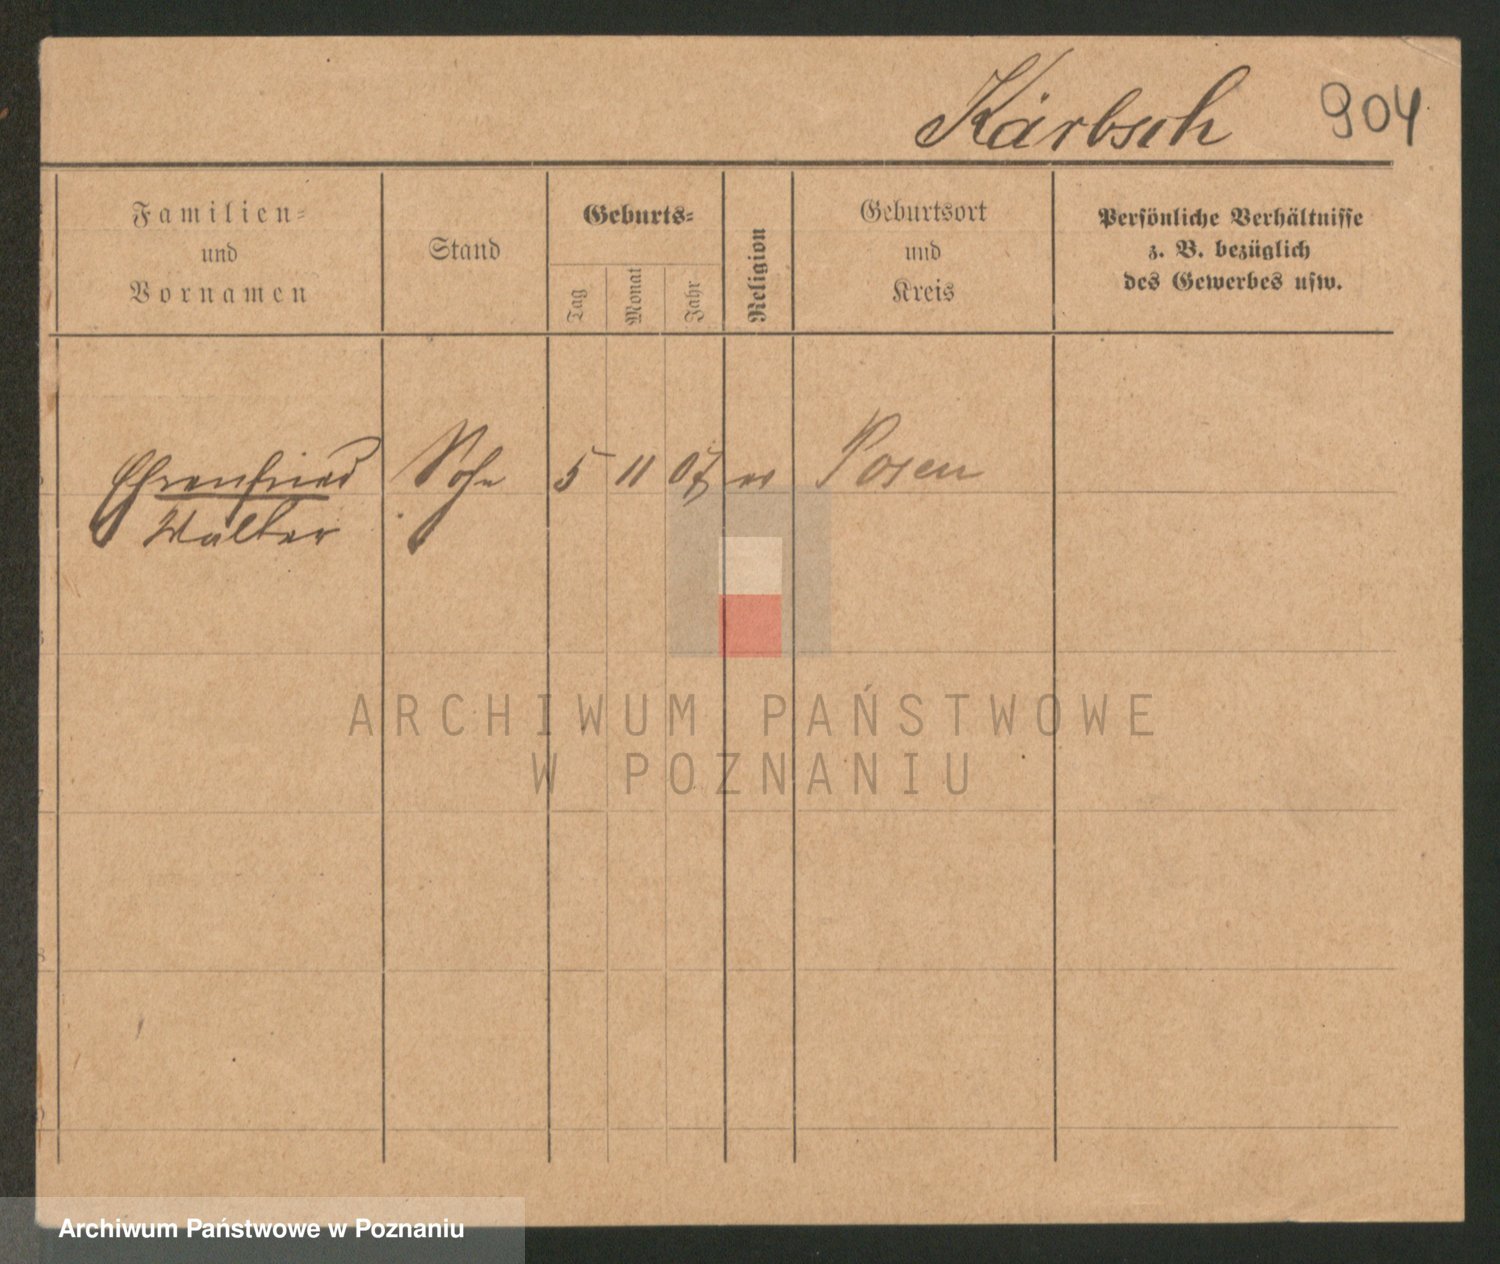 Kärbsch 904
Familien=
und
Vornamen
Stand
Geburts=
Tag
Monat
Jahr
Religion
Geburtsort
und
Kreis
Persönliche Verhältnisse
z. B. bezüglich
des Gewerbes usw.
Ehrenfried Sohn 5 11 07 Posen
Walter
ARCHIWUM PAŃSTWOWE
W POZNANIU
Archiwum Państwowe w Poznaniu